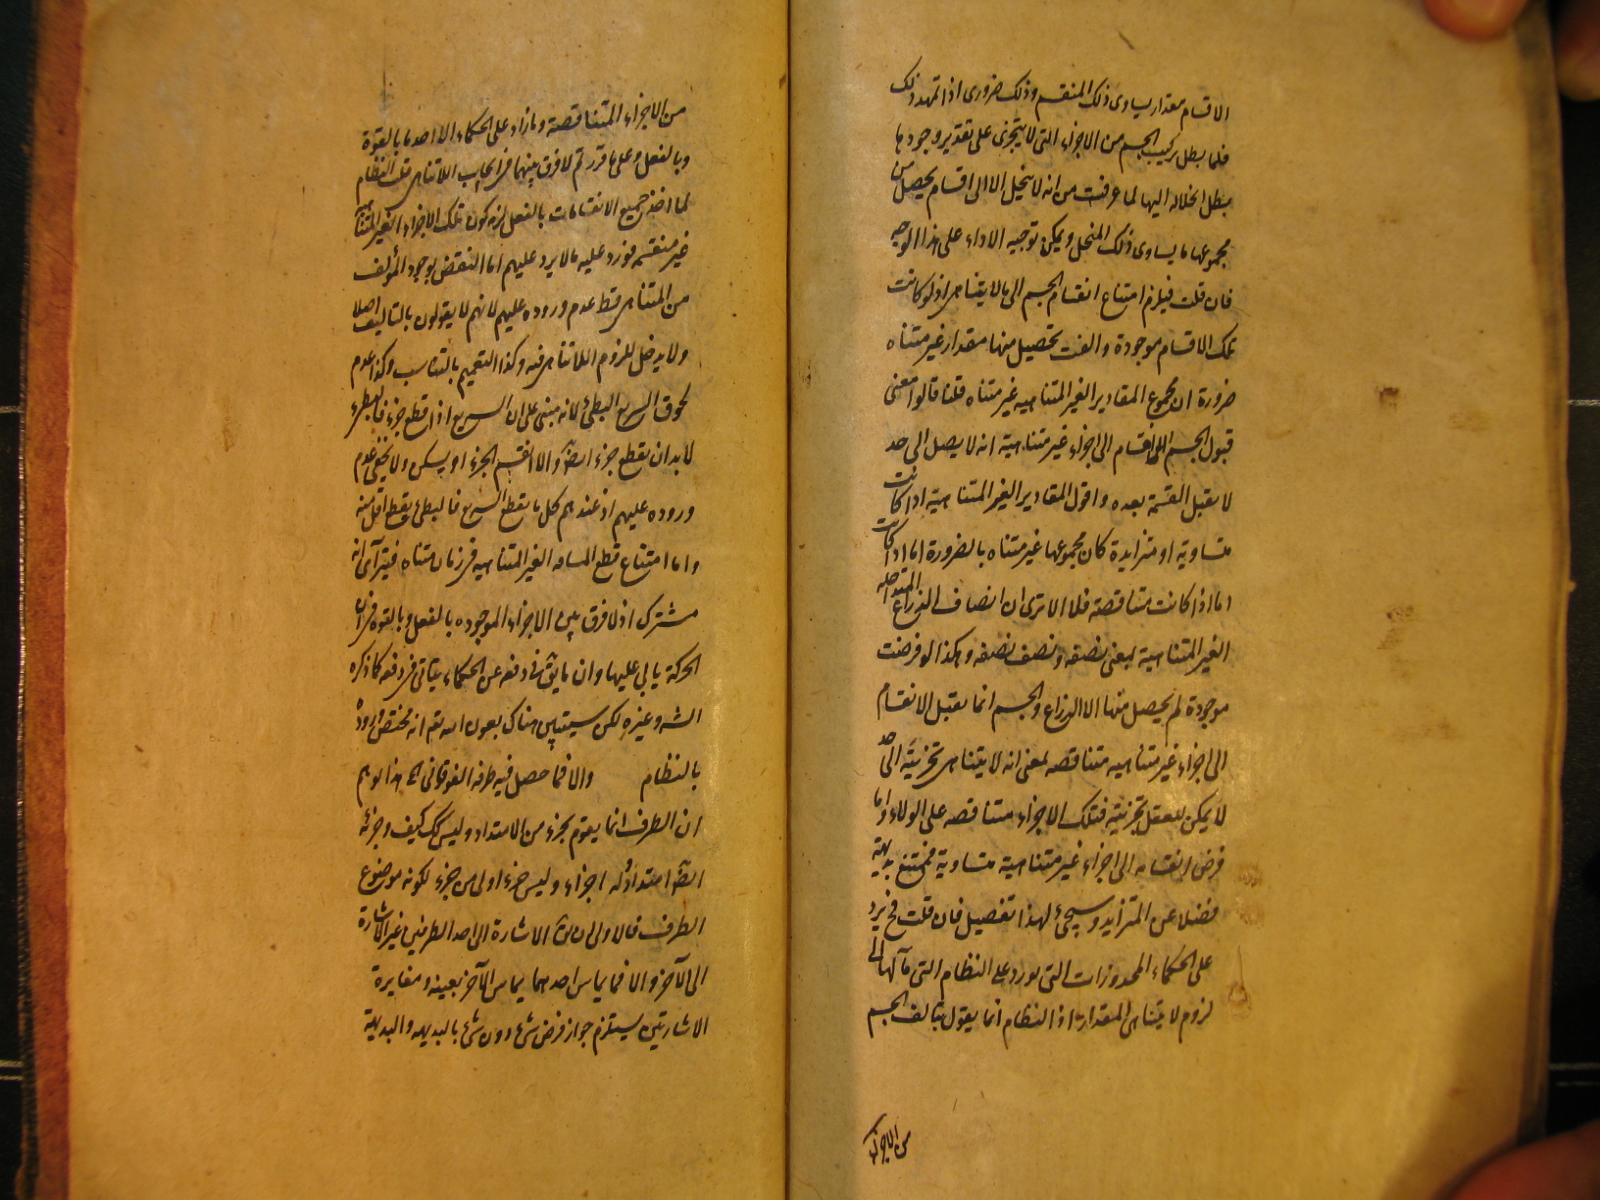 الاقسام مقدار يساوى ذلك المنقسم وذلك ضرورى اذا تمهد ذلك
فلما بطل تركيب الجسم من الاجزاء التى لا يتجزى على تقدير وجودها
بطل انحلاله اليها لما عرفت من انه لا ينحل الا الى اقسام يحصل من
مجموعها ما يساوى ذلك المنحل ويمكن توجيه الاداء على هذا الوجه
فان قلت فيلزم امتناع انقسام الجسم الى ما لا يتناهى اذ لو كانت
تلك الاقسام موجودة والفت تحصيل منها مقدار غير متناه
ضرورة ان مجموع المقادير الغير المتناهيه غير متناه قلنا قالوا معنى
قبول الجسم الانقسام الى اجزاء غير متناهية انه لا يصل الى حد
لا يقبل القسمة بعده واقول المقادير الغير المتناهية اذا كانت
متساوية او متزايدة كان مجموعها غير متناه بالضرورة اما اذا كانت
اما اذا كانت متناقصة فلا الا ترى ان انصاف الذراع المتداخله
الغير المتناهية بمعنى نصفه ونصف نصفه وهكذا لو فرضت
موجودة لم يحصل منها الا الذراع والجسم انما يقبل الانقسام
الى اجزاء غير متناهيه متناقصه بمعنى انه لا يتناهى تجزيته الى حد
لا يمكن للعقل تجزيته فتلك الاجزاء متناقصه على الولاء واما
فرض انقسامه الى اجزاء غير متناهية متساوية فممتنع بديهة
فضلا عن المتزايد وسيجئ لهذا تفصيل فان قلت فح يرد
على الحكماء المحذورات التى يورد على النظام التى مآلها الى
لزوم لا تناهى المقدار اذ النظام انما يقول بتالف الجسم
من الاجزاء
من الاجزاء المتناقصة وما زاد على الحكماء الا احدها بالقوة
وبالفعل وعلى ما قررتم لا فرق بينهما فى ايجاب اللاتناهى قلت النظام
لما اخذ جميع الانقسامات بالفعل لزمه كون تلك الاجزاء الغير المتناهية
غير منقسمه فورد عليه ما لا يرد عليهم اما النقض بوجود المؤلف
من المتناهى فظ عدم وروده عليهم لانهم لا يقولون بالتاليف اصلا
ولا يدخل للزوم اللاتناهى فيه وكذا التعميم بالتناسب وكذا عدم
لحوق السريع البطئ لانه مبنى على ان السريع اذا قطع جزء فالبطئ
لا بد ان يقطع جزء ايضا والا انقسم الجزء او يسكن ولا يخفى عدم
وروده عليهم اذ عندهم كل ما يقطع السريع فالبطئ يقطع اقل منه
واما امتناع قطع المسافه الغير المتناهيه فى زمان متناه فيترآى انه
مشترك اذ لا فرق بين الاجزاء الموجوده بالفعل وبالقوه فى ان
الحركة ياتى عليها وان ما يق فى دفعه عن الحكماء يتاتى فى دفعه كما ذكره
الشه وغيره لكن سيتبين هناك بعون الله تع انه مختص وروده
بالنظام والا فما حصل فيه طرفه الفوقانى اه هذا يوهم
ان الطرف انما يقوم بجزء من الامتداد وليس كك كيف وجزئه
ايضا امتداد وله اجزاء وليس جزء اولى من جزء لكونه موضوع
الطرف فالاولى ان يق الاشارة الى احد الطرفين غير الاشارة
الى الآخر والا فما يماس احدهما يماس الآخر بعينه ومغايرة
الاشارتين يستلزم جواز فرض شئ دون شئ بالبديهه والبديهة